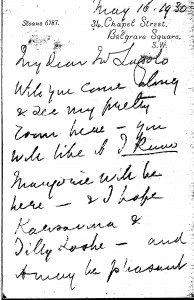 May 16. 1930
Sloane 6787.
34 Chapel Street.
Belgrave Square.
S.W.
My dear Mr
Will you come
& see my pretty
room here – you
will like it I know
Marjorie will be
here – & I hope
Karsavina &
Tilly Losche – and
it may be pleasant